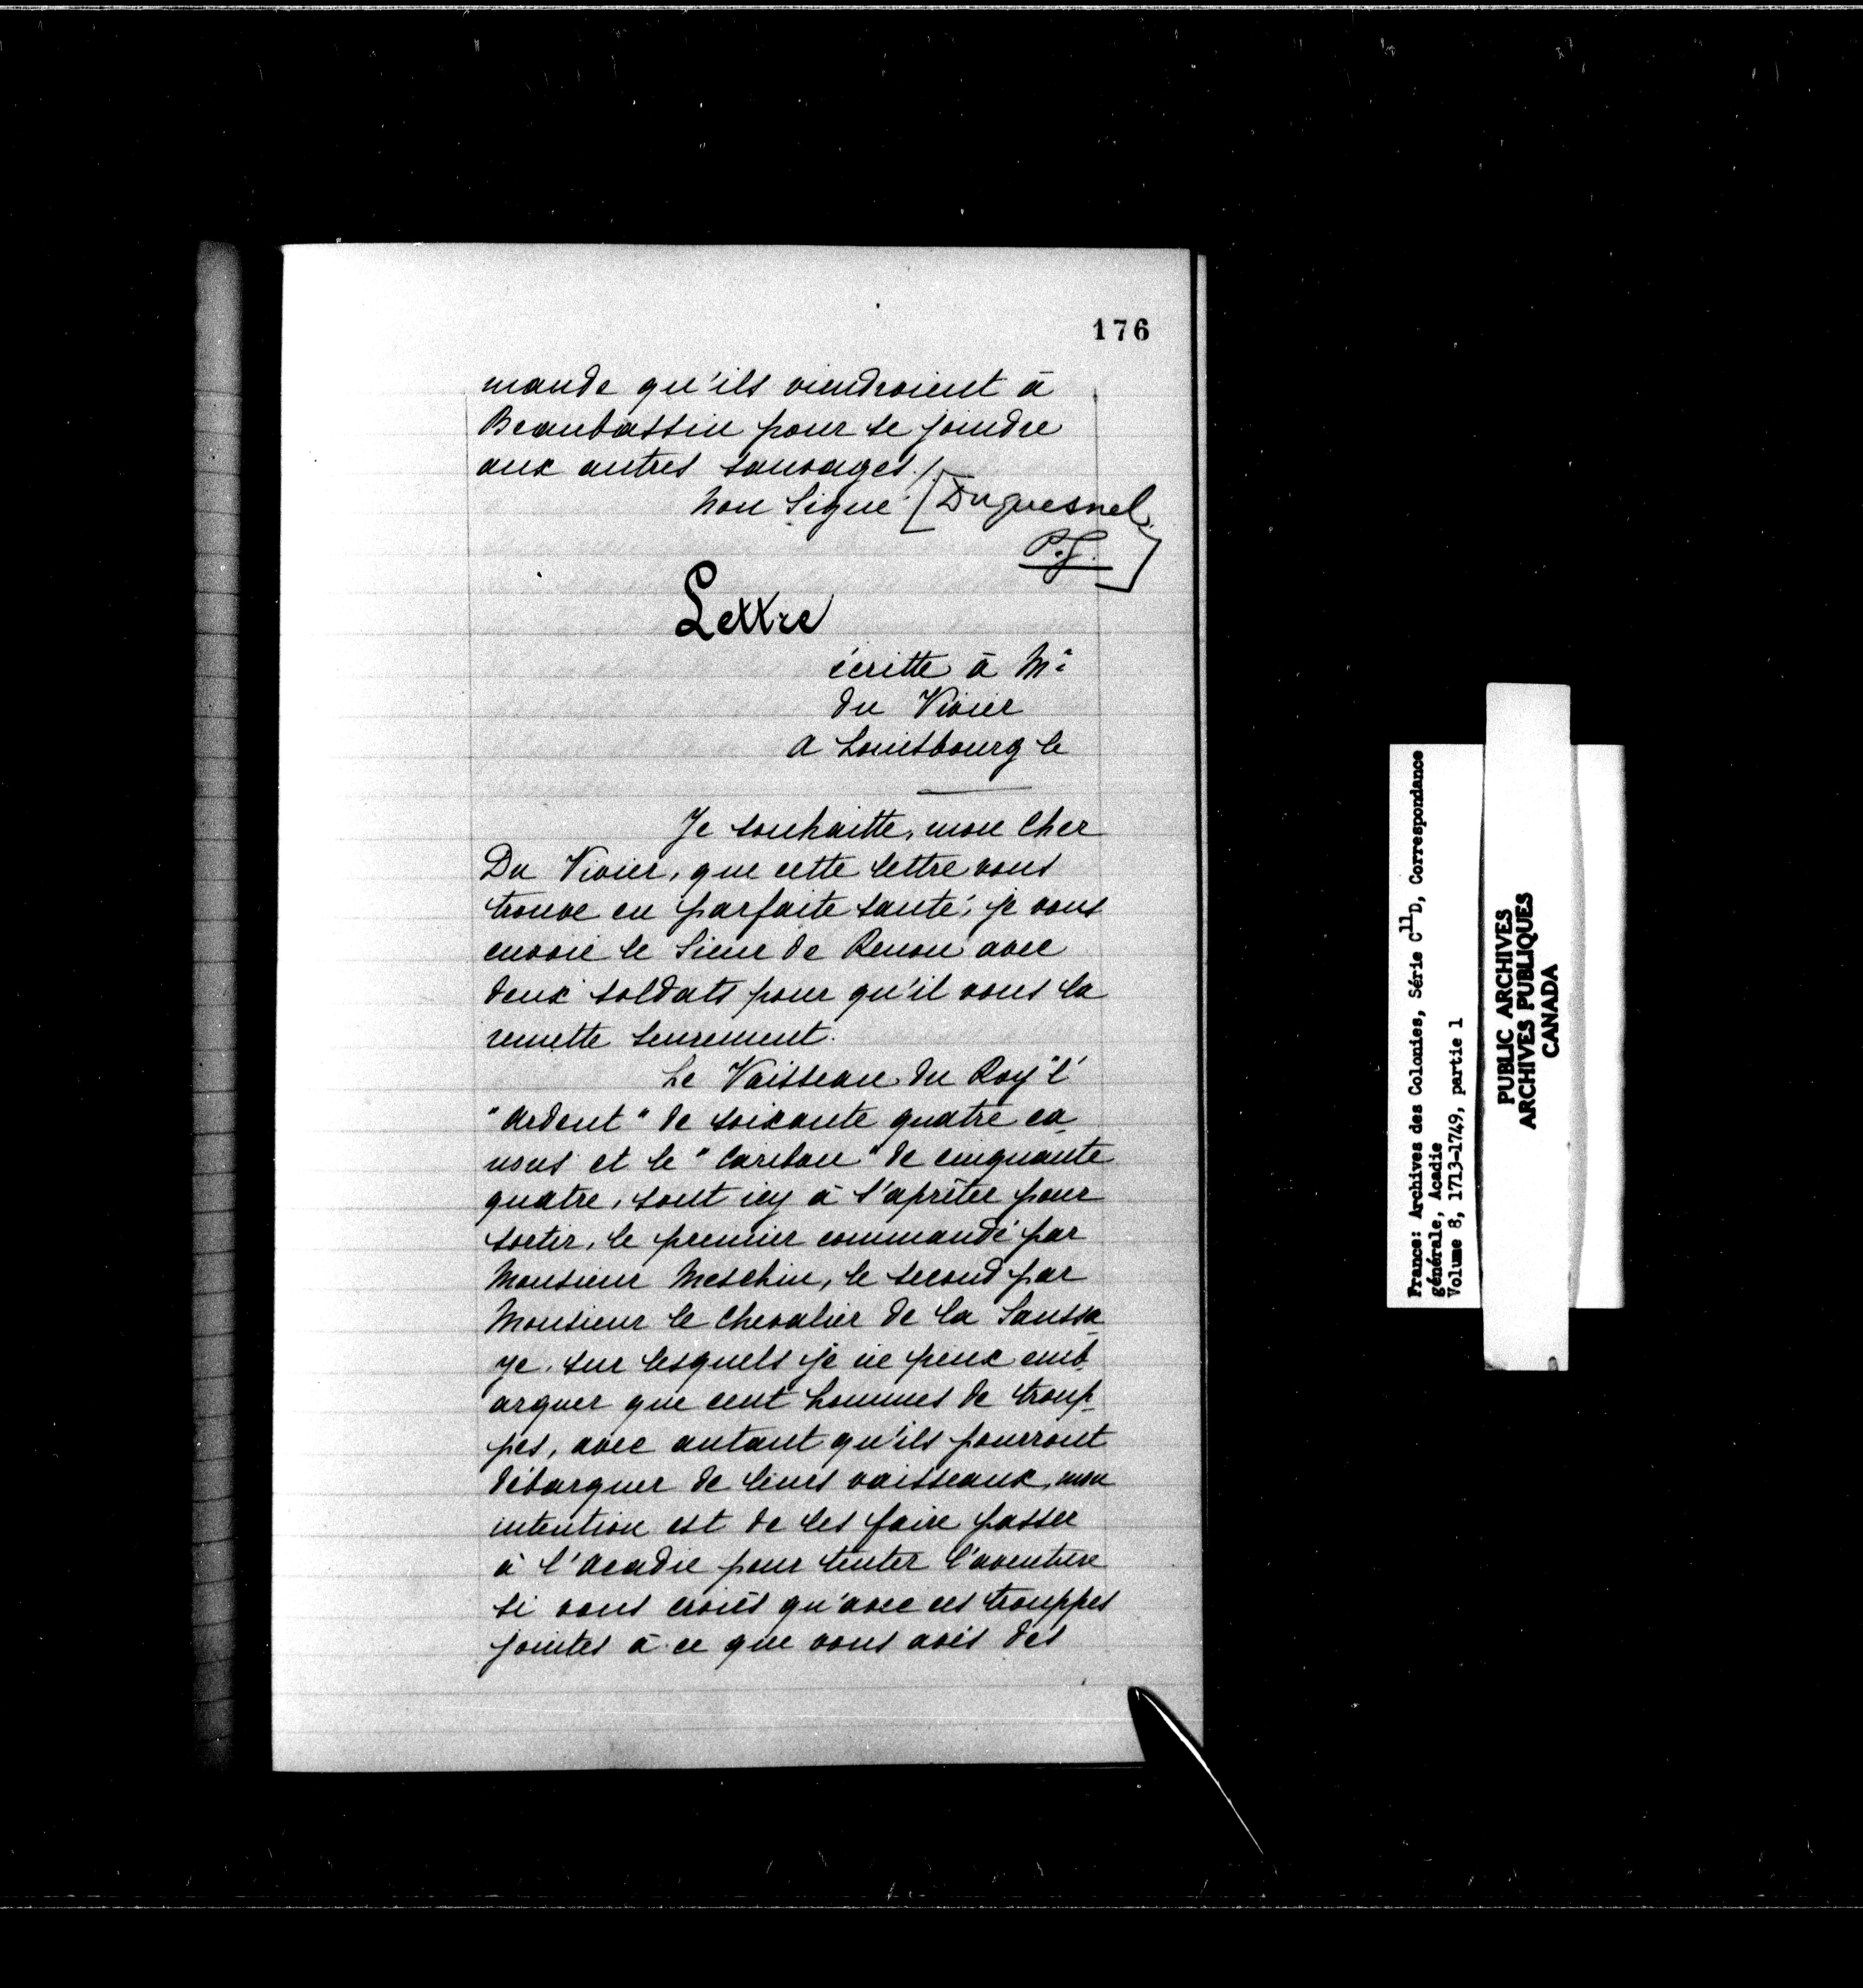 176
mande qu'ils viendroient à
Beaubassin pour se joindre
aux autres sauvages./.
Non Signé [Duquesnel
P.G.]
Lettre
écritte à Mr
du Vivier
A Louisbourg le
Je souhaitte, mon Cher
Du Vivier, que cette lettre vous
trouve en parfaite santé; je vous
envoie le Sieur de Renou avec
deux soldats pour qu'il vous la
remette seurement.
Le Vaisseau du Roy "l'
"Ardent" de soixante quatre ca-
nons et le "Caribou" de cinquante
quatre, sont icy à s'aprêter pour
sortir, le premier commandé par
Monsieur Meschin, le second par
Monsieur le Chevalier de la Saussa-
ye, sur lesquels je ne peux emb-
arquer que cent hommes de troup-
pes, avec autant qu'ils pourront
débarquer de leurs vaisseaux, mon
intention est de les faire passer
à l'Acadie pour tenter l'aventure
si vous croiés qu'avec ces trouppes
jointes à ce que vous avés des
France: Archives des Colonies, Série C11D, Correspondance
générale, Acadie
Volume 8, 1713-1749, partie 1
PUBLIC ARCHIVES
ARCHIVES PUBLIQUES
CANADA